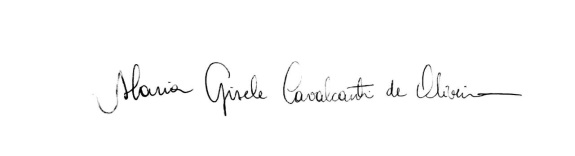 Maria Gisele Cavalcanti de Oliveira